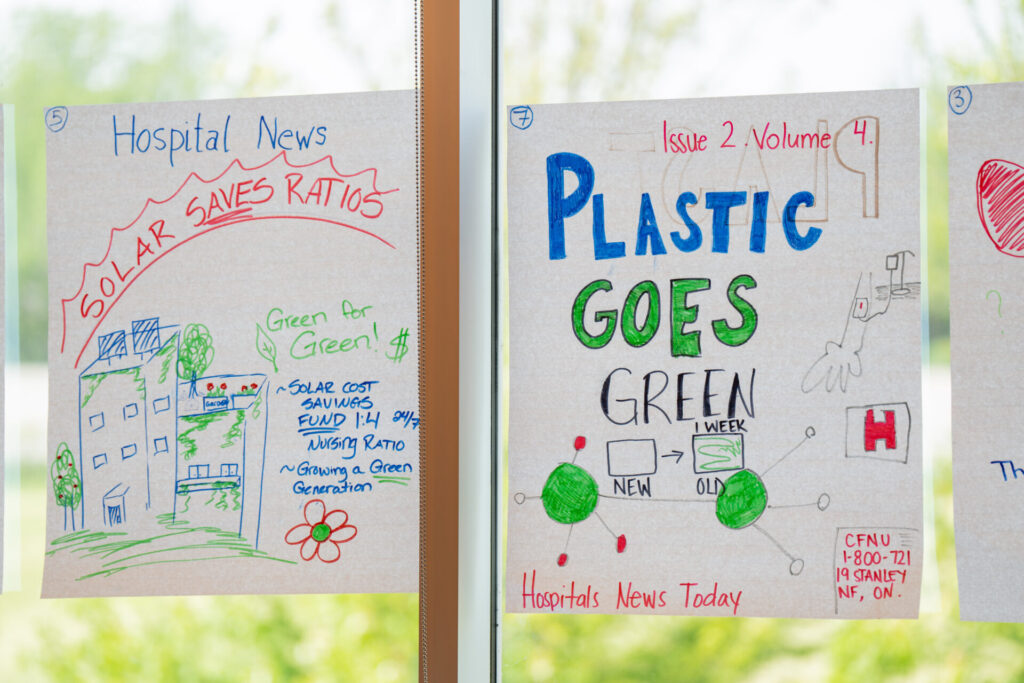 5
Hospital News
SOLAR SAVES RATIOS
Green for
Green! $
GARDEN
~SOLAR COST
SAVINGS
FUND 1:4 24/7
NURSING RATIO
~Growing a Green
Generation
7
Issue 2. Volume 4.
PLASTIC
GOES
GREEN
1 WEEK
NEW
OLD
H
CFNU
1-800-721
19 STANLEY
NF, ON.
Hospitals News Today
3
?
Th